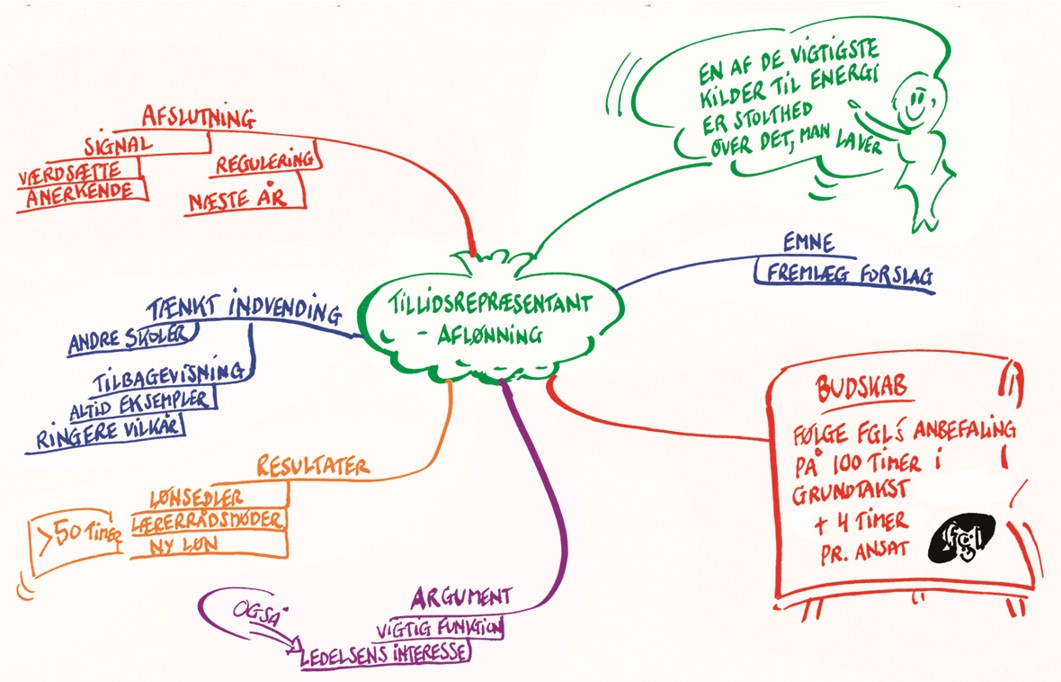 EN AF DE VIGTIGSTE
KILDER TIL ENERGI
ER STOLTHED
OVER DET, MAN LAVER
EMNE
FREMLÆG FORSLAG
BUDSKAB
FØLGE FGL'S ANBEFALING
PÅ 100 TIMER i
GRUNDTAKST
+ 4 TIMER
PR. ANSAT
fgl
TILLIDSREPRÆSENTANT
- AFLØNNING
ARGUMENT
VIGTIG FUNKTION
LEDELSENS INTERESSE
OGSÅ
RESULTATER
LØNSEDLER
LÆRERRÅDSMØDER
NY LØN
>50 Timer
TÆNKT INDVENDING
ANDRE SKOLER
TILBAGEVISNING
ALTID EKSEMPLER
RINGERE VILKÅR
AFSLUTNING
SIGNAL
VÆRDSÆTTE
ANERKENDE
REGULERING
NÆSTE ÅR